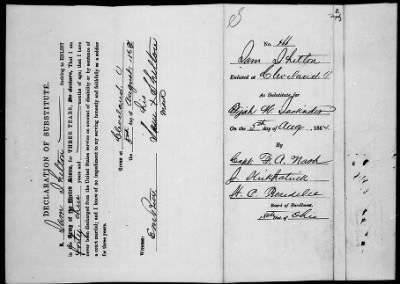 DECLARATION OF SUBSTITUTE.
I, Sam Shelton desiring to ENLIST
in the Army of the United States, for THREE YEARS, Do declare, That I am
forty one years and months of age; that I have
never been discharged from the United States service on account of disability or by sentence of
a court martial; and I know of no impediment to my serving honestly and faithfully as a soldier
for three years.
Given at Cleveland O
5th day of August 1864
Sam his X Shelton
mark
Witness:
S
No.
Sam Shelton
Enlisted at Cleveland O
As Substitute for
Elijah W.
On the 5th day of Aug 1864
By
Capt F. A. Nash
J Kirkpatrick
H. C.
Board of Enrollment,
Dist. of Ohio